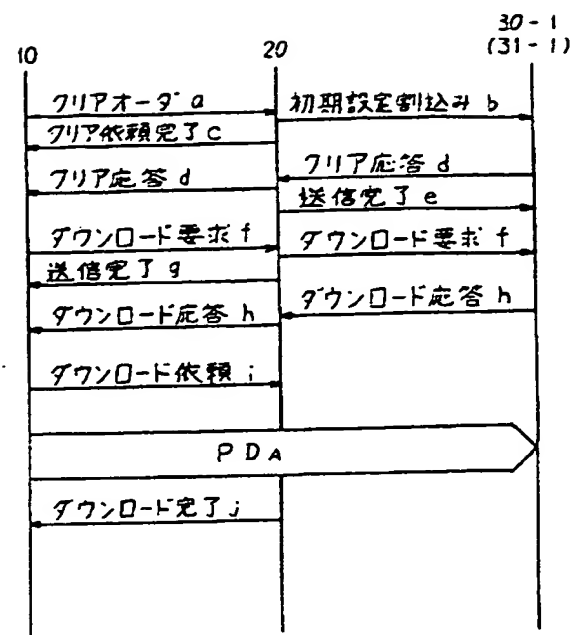 30-1
10 20 (31-1)
クリアオーダ a 初期設定割込み b
クリア依頼完了 c
クリア応答 d
クリア応答 d
送信完了 e
ダウンロード要求 f ダウンロード要求 f
送信完了 g
ダウンロード応答 h ダウンロード応答 h
ダウンロード依頼 i
PDA
ダウンロード完了 j